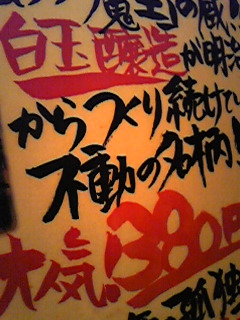 魔王の蔵
白玉醸造が明治
からつくり続けてい
不動の名柄!
大気!380円
孤独